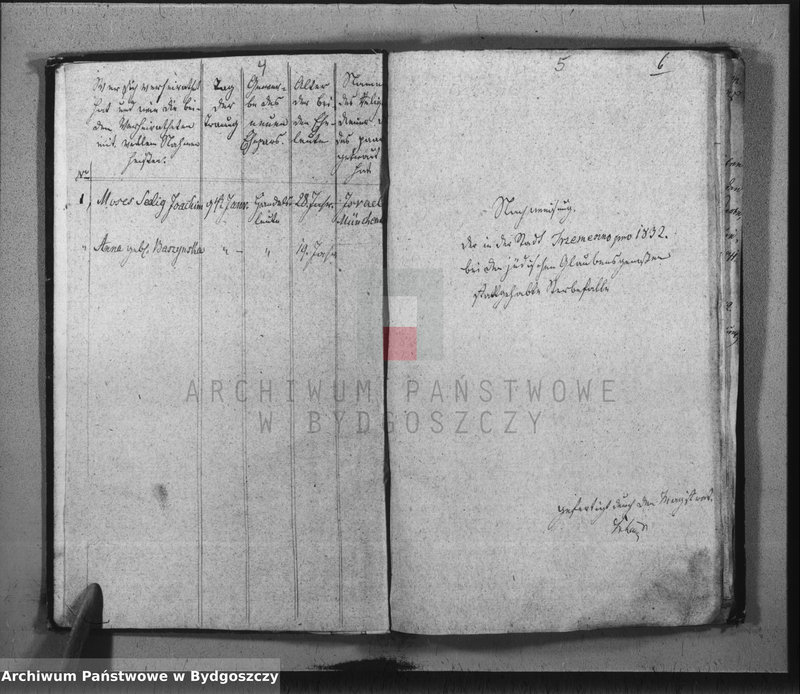 4
Wer sich verheirathet
hat und wie die bei-
den Verheiratheten
mit vollem Nahmen
heißen.
Tag
der
Trauung
Gewer-
be des
neuen
Ehepars.
Alter
der bei-
den Ehe-
leute
Namen
des
des
hat
No
1, Moses Selig Joachim 9t Janr. Handels- 28 Jahr. Israel
leute
" Anna geb. Baszynska " — " 19. Jahr
5 6
Nachweisung.
Der in der Stadt Trzemeszno pro 1832.
bei den jüdischen Glaubensgenossen
stattgehabte Sterbefälle
gefertigt durch den Magistrat.
ARCHIWUM PAŃSTWOWE
W BYDGOSZCZY
Archiwum Państwowe w Bydgoszczy